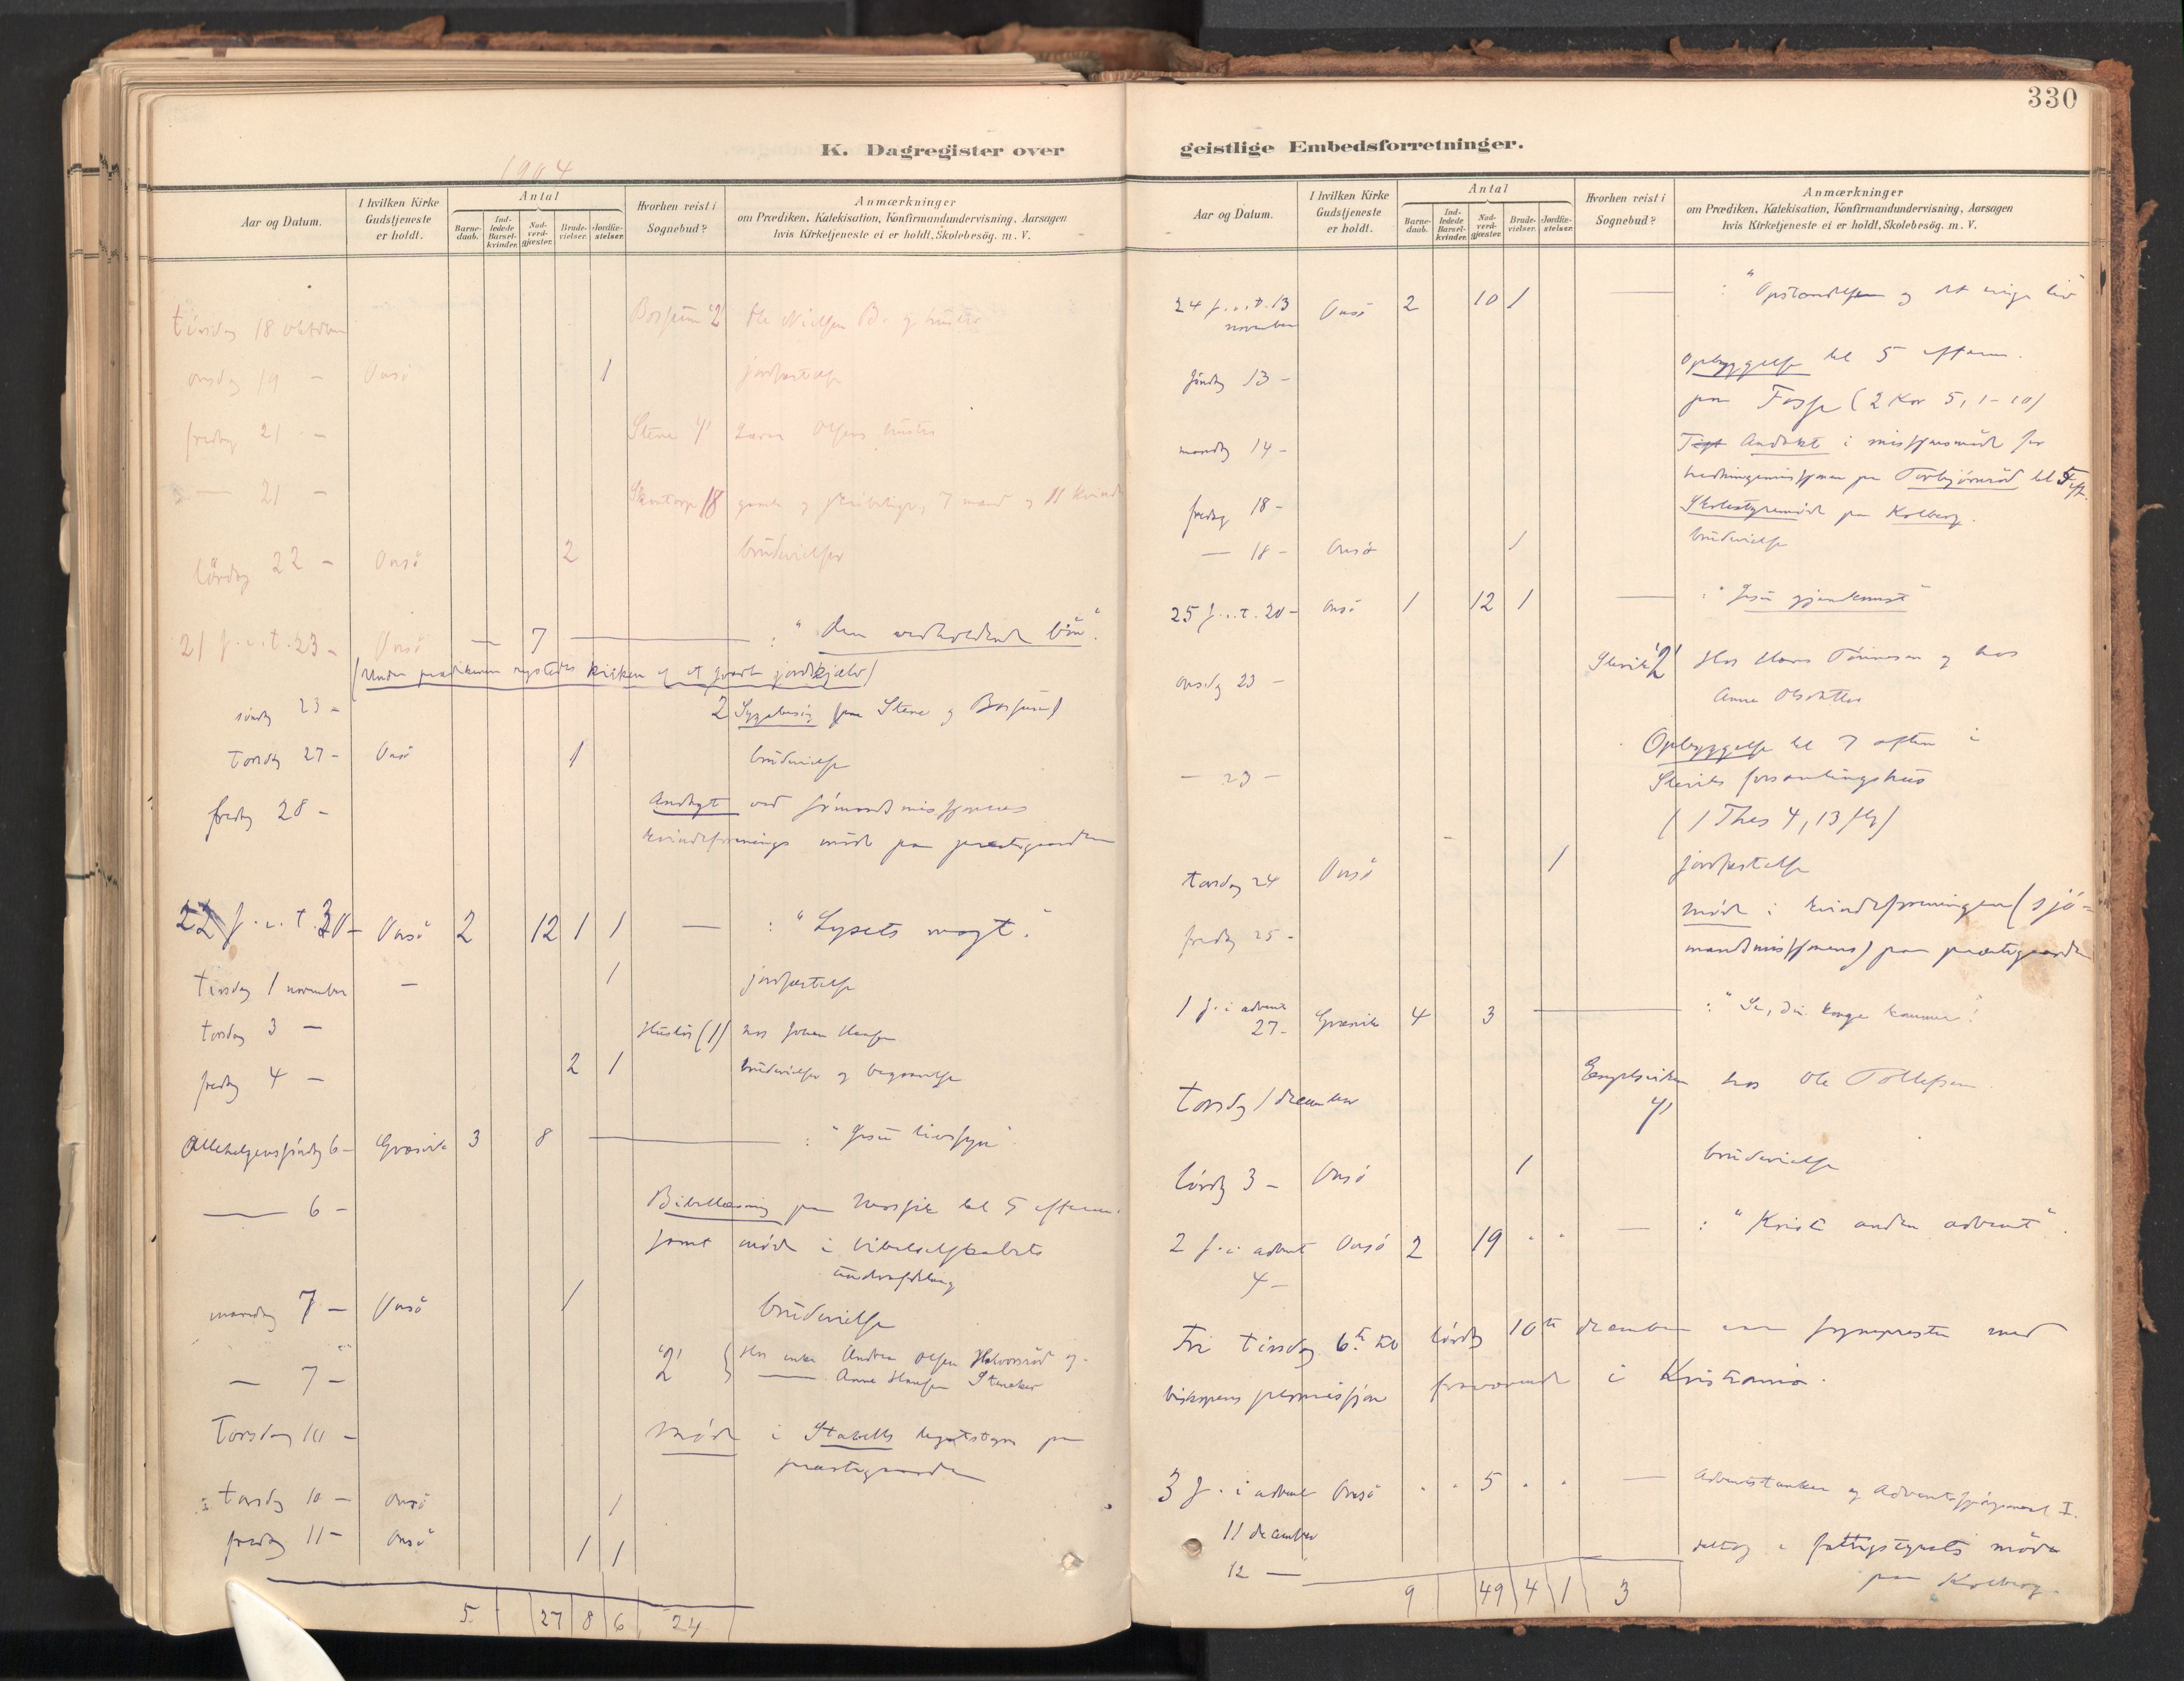 330
K. Dagregister over
geistlige Embedsforretninger.
1904
Aar og Datum.
I hvilken Kirke
Gudstjeneste
er holdt.
Antal
Barne-
daab.
Ind-
ledede
Barsel-
kvinder.
Nad-
verd-
gjæster.
Brude-
vielser.
Jordfæ-
stelser.
Hvorhen reist i
Sognebud?
Anmærkninger
om Prædiken, Katekisation, Konfirmandundervisning, Aarsagen
hvis Kirketjeneste ei er holdt, Skolebesøg. m. V.
tirsdag 18 oktober 2 Ole Nielsen B. og hustru
onsdag 19 – Onsö 1 jordfæstelse
fredag 21 – Stene Olsens hustru
— 21 – 18 gamle og 7 mænd og 11 kvinder
lördag 22 – Onsö 2 brudevielser
21 s. e. t. 23 – Onsö — 7 — : "Den vedholdende bön".
(Under prædikenen rystedes kirken af et jordskjælv)
söndag 23 – 2 Sygebesög paa Stene og
Torsdag 27 – Onsö 1 brudevielse
fredag 28 – Andagt ved sjömandsmissjonens
kvindeforenings möde paa præstegaarden
22 s. e. t. 30 – Onsö 2 12 1 1 — : "Lysets magt".
tirsdag 1 november – 1 jordfæstelse
torsdag 3 – (1) hos Johan Hansen
fredag 4 – 2 1 brudevielser og begravelse
Allehelgenssöndag 6 – Græsvik 3 8 — : "Jesu livssyn".
— 6 – Bibellæsning paa kl 5 efterm.
samt möde i bibelselskabets
underafdeling
mandag 7 – Onsö 1 brudevielse
— 7 – 2 Hos enke Andrea Olsen Halvorsröd og
— Anne Hansen
Torsdag 10 – Möde i Stabells legatstyre paa
præstegaarden
torsdag 10 – Onsö 1
fredag 11 – Onsö 1 1
5 27 8 6 24
Aar og Datum.
I hvilken Kirke
Gudstjeneste
er holdt.
Antal
Barne-
daab.
Ind-
ledede
Barsel-
kvinder.
Nad-
verd-
gjæster.
Brude-
vielser.
Jordfæ-
stelser.
Hvorhen reist i
Sognebud?
Anmærkninger
om Prædiken, Katekisation, Konfirmandundervisning, Aarsagen
hvis Kirketjeneste ei er holdt, Skolebesøg. m. V.
24 s. e. t. 13 november Onsö 2 10 1 — : "Opstandelsen og det evige liv
söndag 13 – Opbyggelse kl 5 efterm.
paa (2 Kor 5, 1–10)
mandag 14 – Andakt i missjonsmöde for
hedningemissjonen paa Torbjörnröd kl 5 eft.
fredag 18 – Skolestyremöde paa Kolberg.
— 18 – Onsö 1 brudevielse
25 s. e. t. 20 – Onsö 1 12 1 — : "Jesu gjenkomst"
onsdag 23 – Slevik 2 Hos Hans Tönnesen og hos
Anne Olsdatter
— 23 – Opbyggelse kl 7 aften i
Sleviks forsamlingshus
(1 Thes 4, 13 flg)
torsdag 24 Onsö 1 jordfæstelse
fredag 25 – Möde i kvindeforeningen (sjö-
mandsmissjonens) paa præstegaarden
1 s. i advent 27 – Græsvik 4 3 — : "Se, din konge kommer".
Torsdag 1 december hos Ole Tollefsen
lördag 3 – Onsö 1 brudevielse
2 s. i advent 4 – Onsö 2 19 — : "Kristi anden advent".
Fra tirsdag 6te til lördag 10de december var sognepresten med
biskopens permissjon fraværende i Kristiania.
3 s. i advent Onsö 5 — Adventstanker og Adventsspörgsmaal I.
11 december
12 — deltog i fattigstyrets möde
paa Kolberg.
9 49 4 1 3